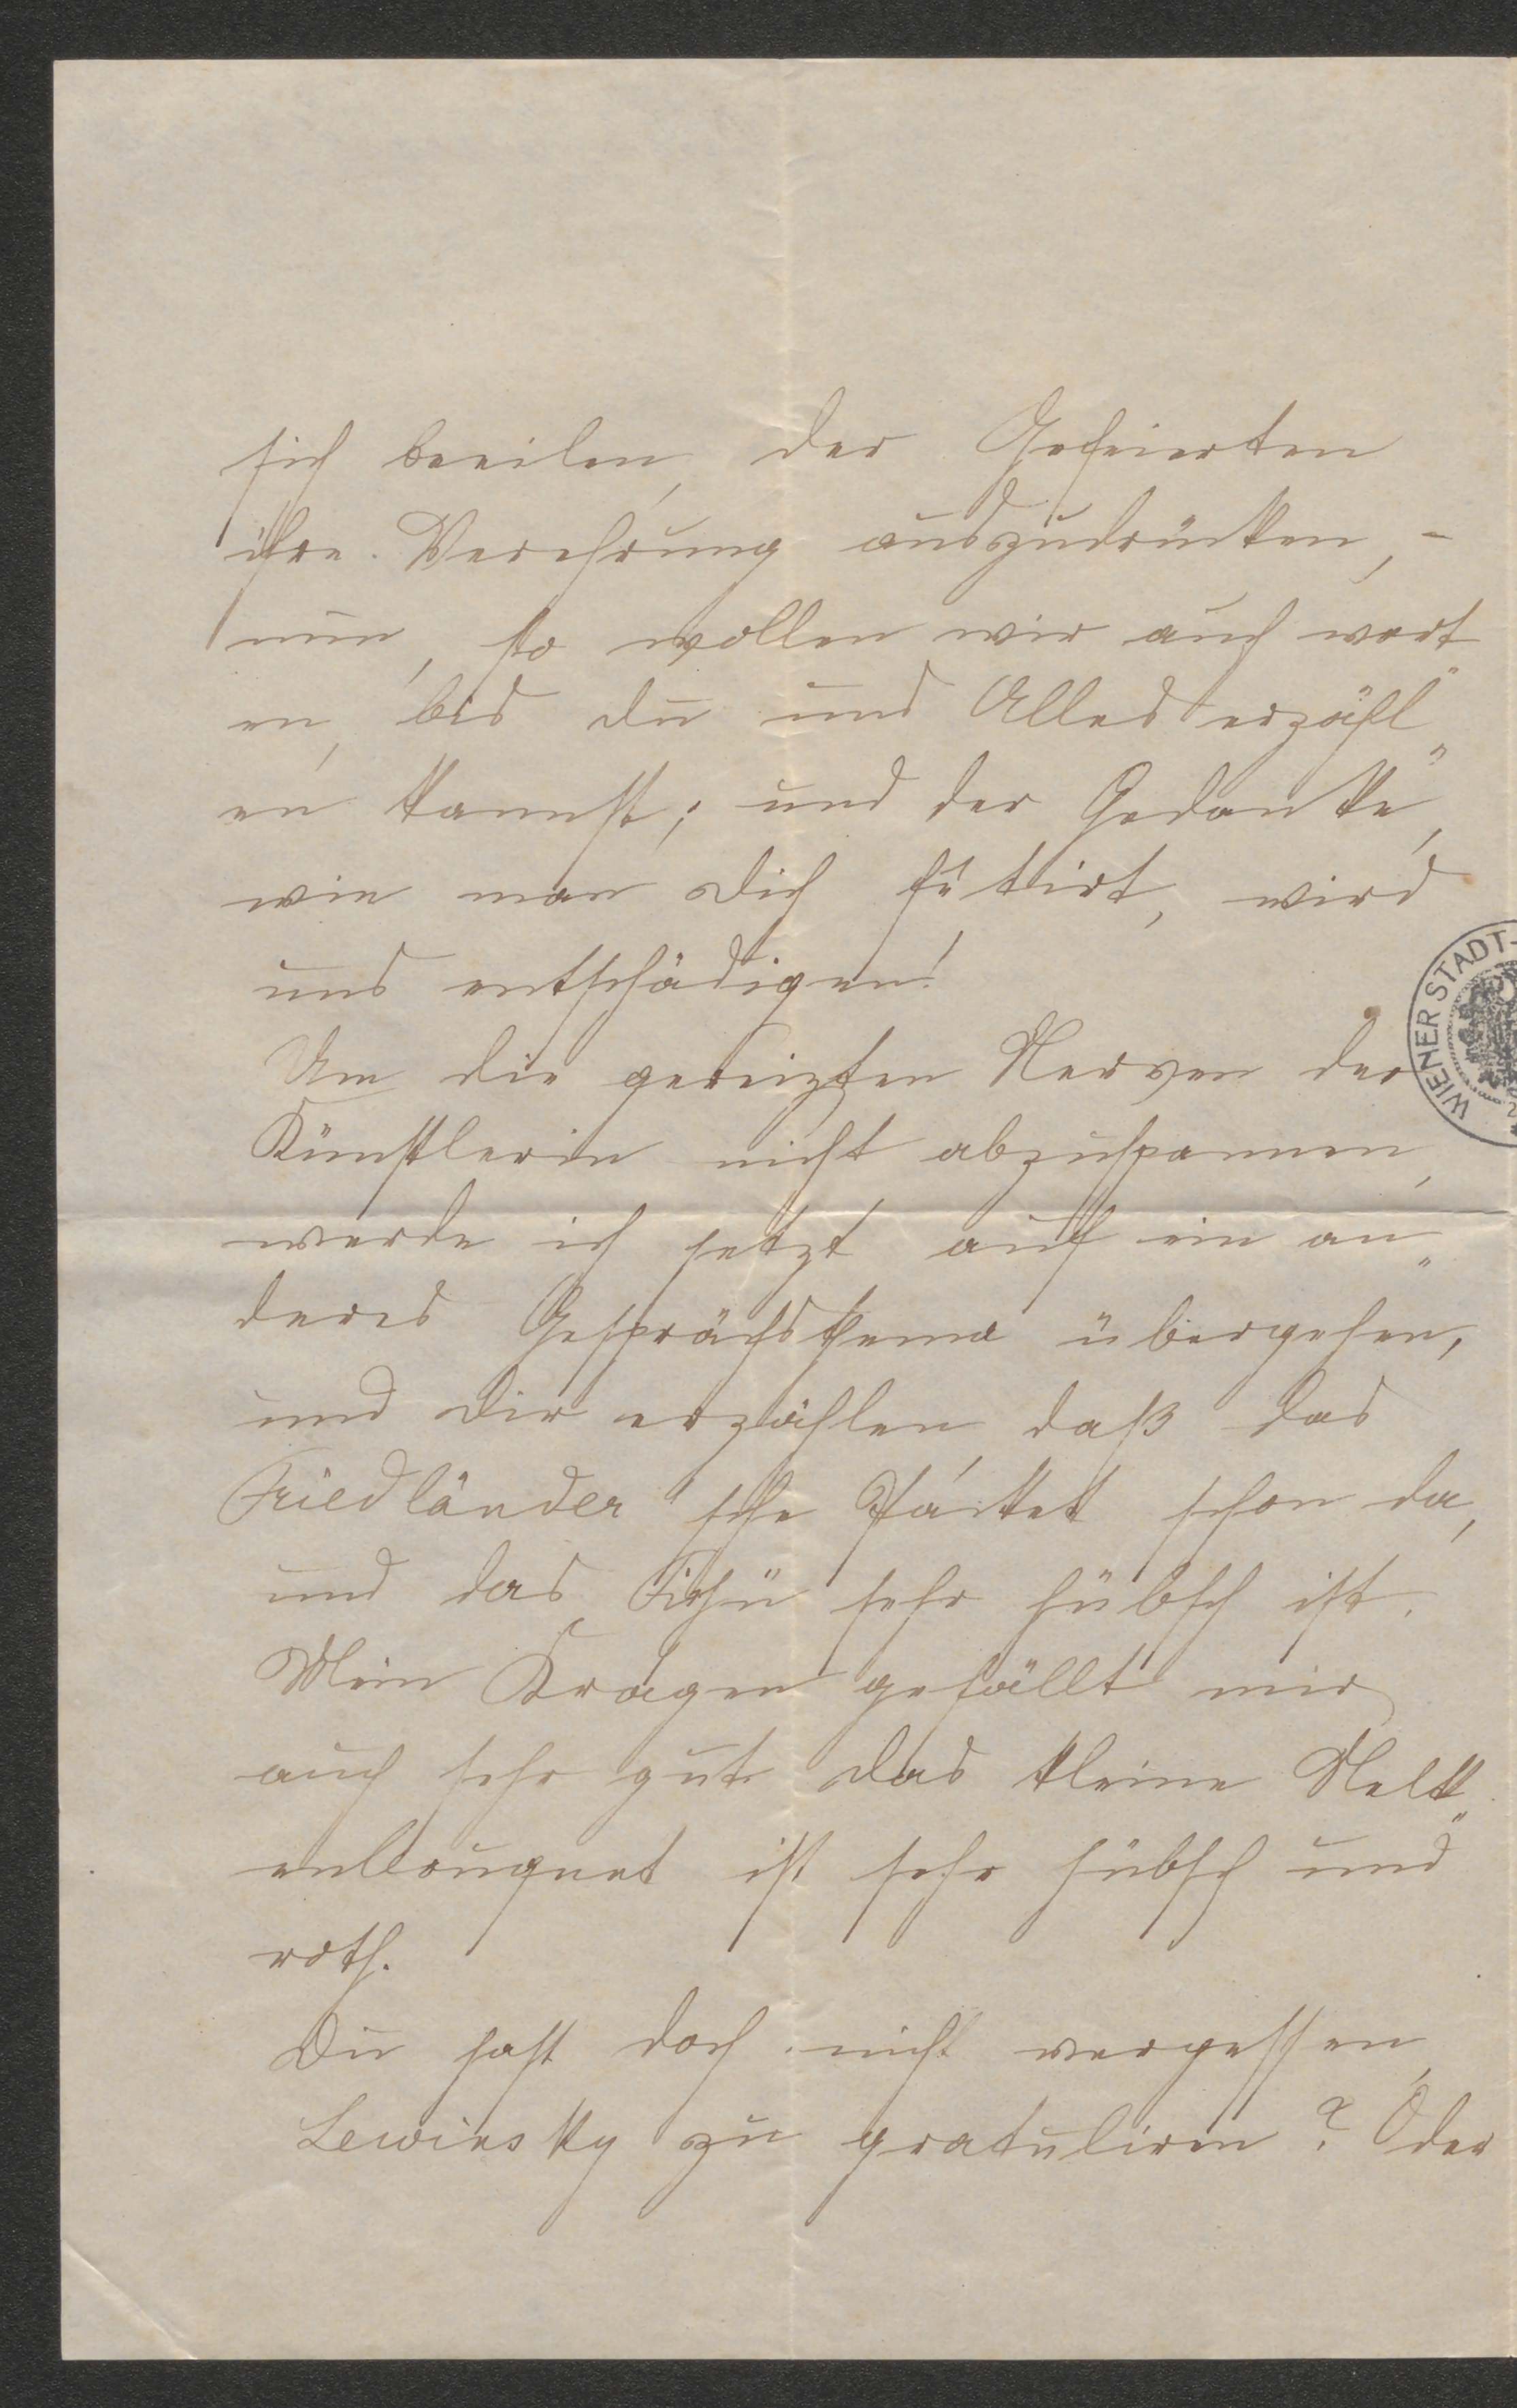 sich beeilen, der Gefeierten
ihre Verehrung auszudrücken, -
nun, so wollen wir auch wart
en, bis du uns Alles erzähl„
en kannst; und der Gedanke,
wie man dich fêtirt, wird
uns entschädigen!
Um die gereizten Nerven der
Künstlerin nicht abzuspannen,
werde ich jetzt auf ein an„
deres Gesprächsthema übergehen,
und dir erzählen, daß das
Friedländer'sche Packet schon da,
und das Fichü sehr hübsch ist.
Mein Kragen gefällt mir
auch sehr gut. das kleine Nelk„
enbouquet ist sehr hübsch und
roth.
Du hast doch nicht vergessen,
Lewinsky zu gratuliren? Oder
WIENER STADT-